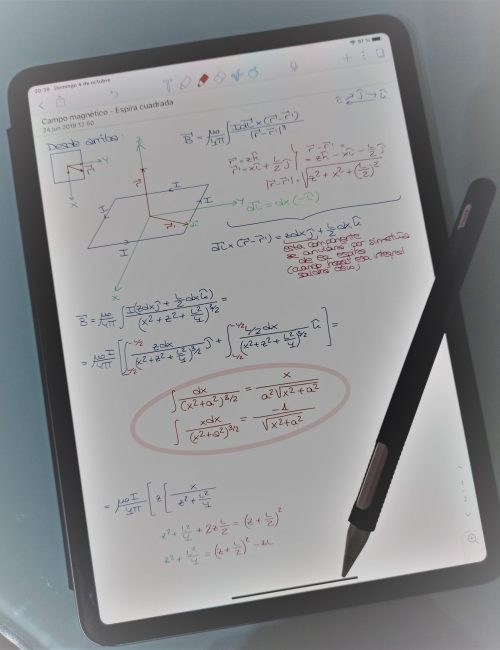 20:39 Domingo 4 de octubre
97 %
Campo magnético - Espira cuadrada
24 jun 2019 12:50
Desde arriba:
B⃗ = μ₀/4π ∫ I dl⃗ × (r⃗ - r⃗')/|r⃗ - r⃗'|³
r⃗ = z k̂
r⃗' = x î + L/2 ĵ
r⃗ - r⃗' = z k̂ - x î - L/2 ĵ
|r⃗ - r⃗'| = √(z² + x² + (L/2)²)
dl⃗ = dx (-î)
dl⃗ × (r⃗ - r⃗') = z dx ĵ + L/2 dx k̂
esta componente
se anulará por simetría
(cuando
B⃗ = μ₀/4π ∫ I(z dx ĵ + L/2 dx k̂)/(x² + z² + L²/4)^3/2 =
= μ₀I/4π [∫_{L/2}^{-L/2} z dx/(x² + z² + L²/4)^3/2 ĵ + ∫_{L/2}^{-L/2} L/2 dx/(x² + z² + L²/4)^3/2 k̂] =
∫ dx/(x² + a²)^3/2 = x/(a²√(x² + a²))
∫ x dx/(x² + a²)^3/2 = -1/√(x² + a²)
= μ₀I/4π [z [x/(z² + L²/4)
z² + L²/4 + 2z L/2 = (z + L/2)²
z² + L²/4 = (z + L/2)² - zL